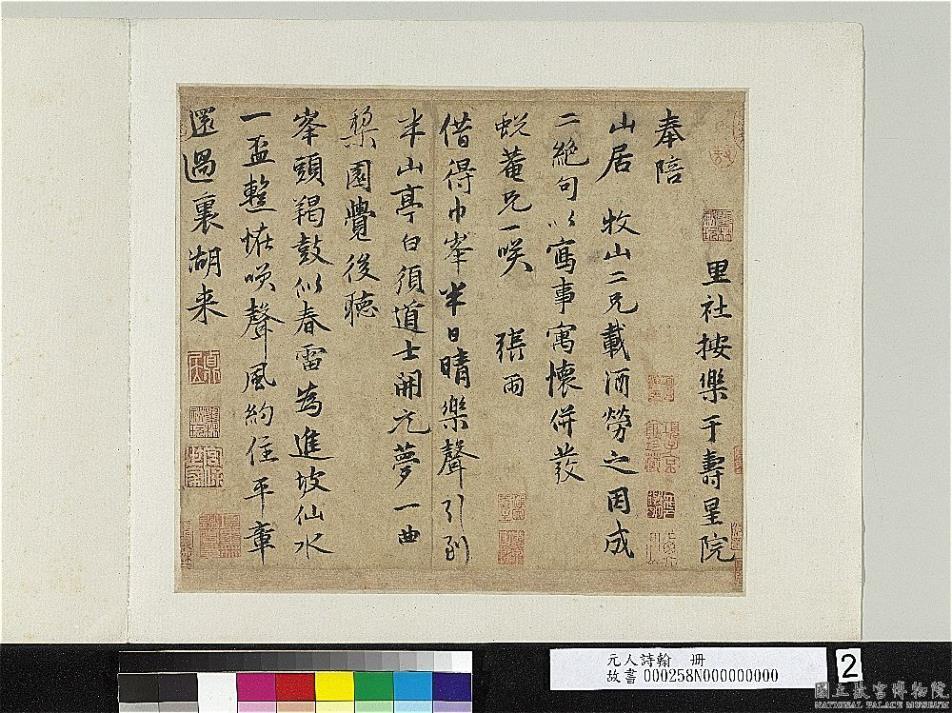 里社按樂于壽星院
奉陪
山居　牧山二兄載酒勞之因成
二絕句以寫事寓懷併發
蛻菴兄一咲　張雨
借得巾峯半日晴樂聲引到
半山亭白須道士開元夢一曲
棃園覺後聴
峯頭羯鼓似春雷為進坡仙水
一盃整恠咲聲風約住平章
還過裏湖来
元人詩翰　冊
故書000258N000000000
2
國立故宮博物院
NATIONAL PALACE MUSEUM